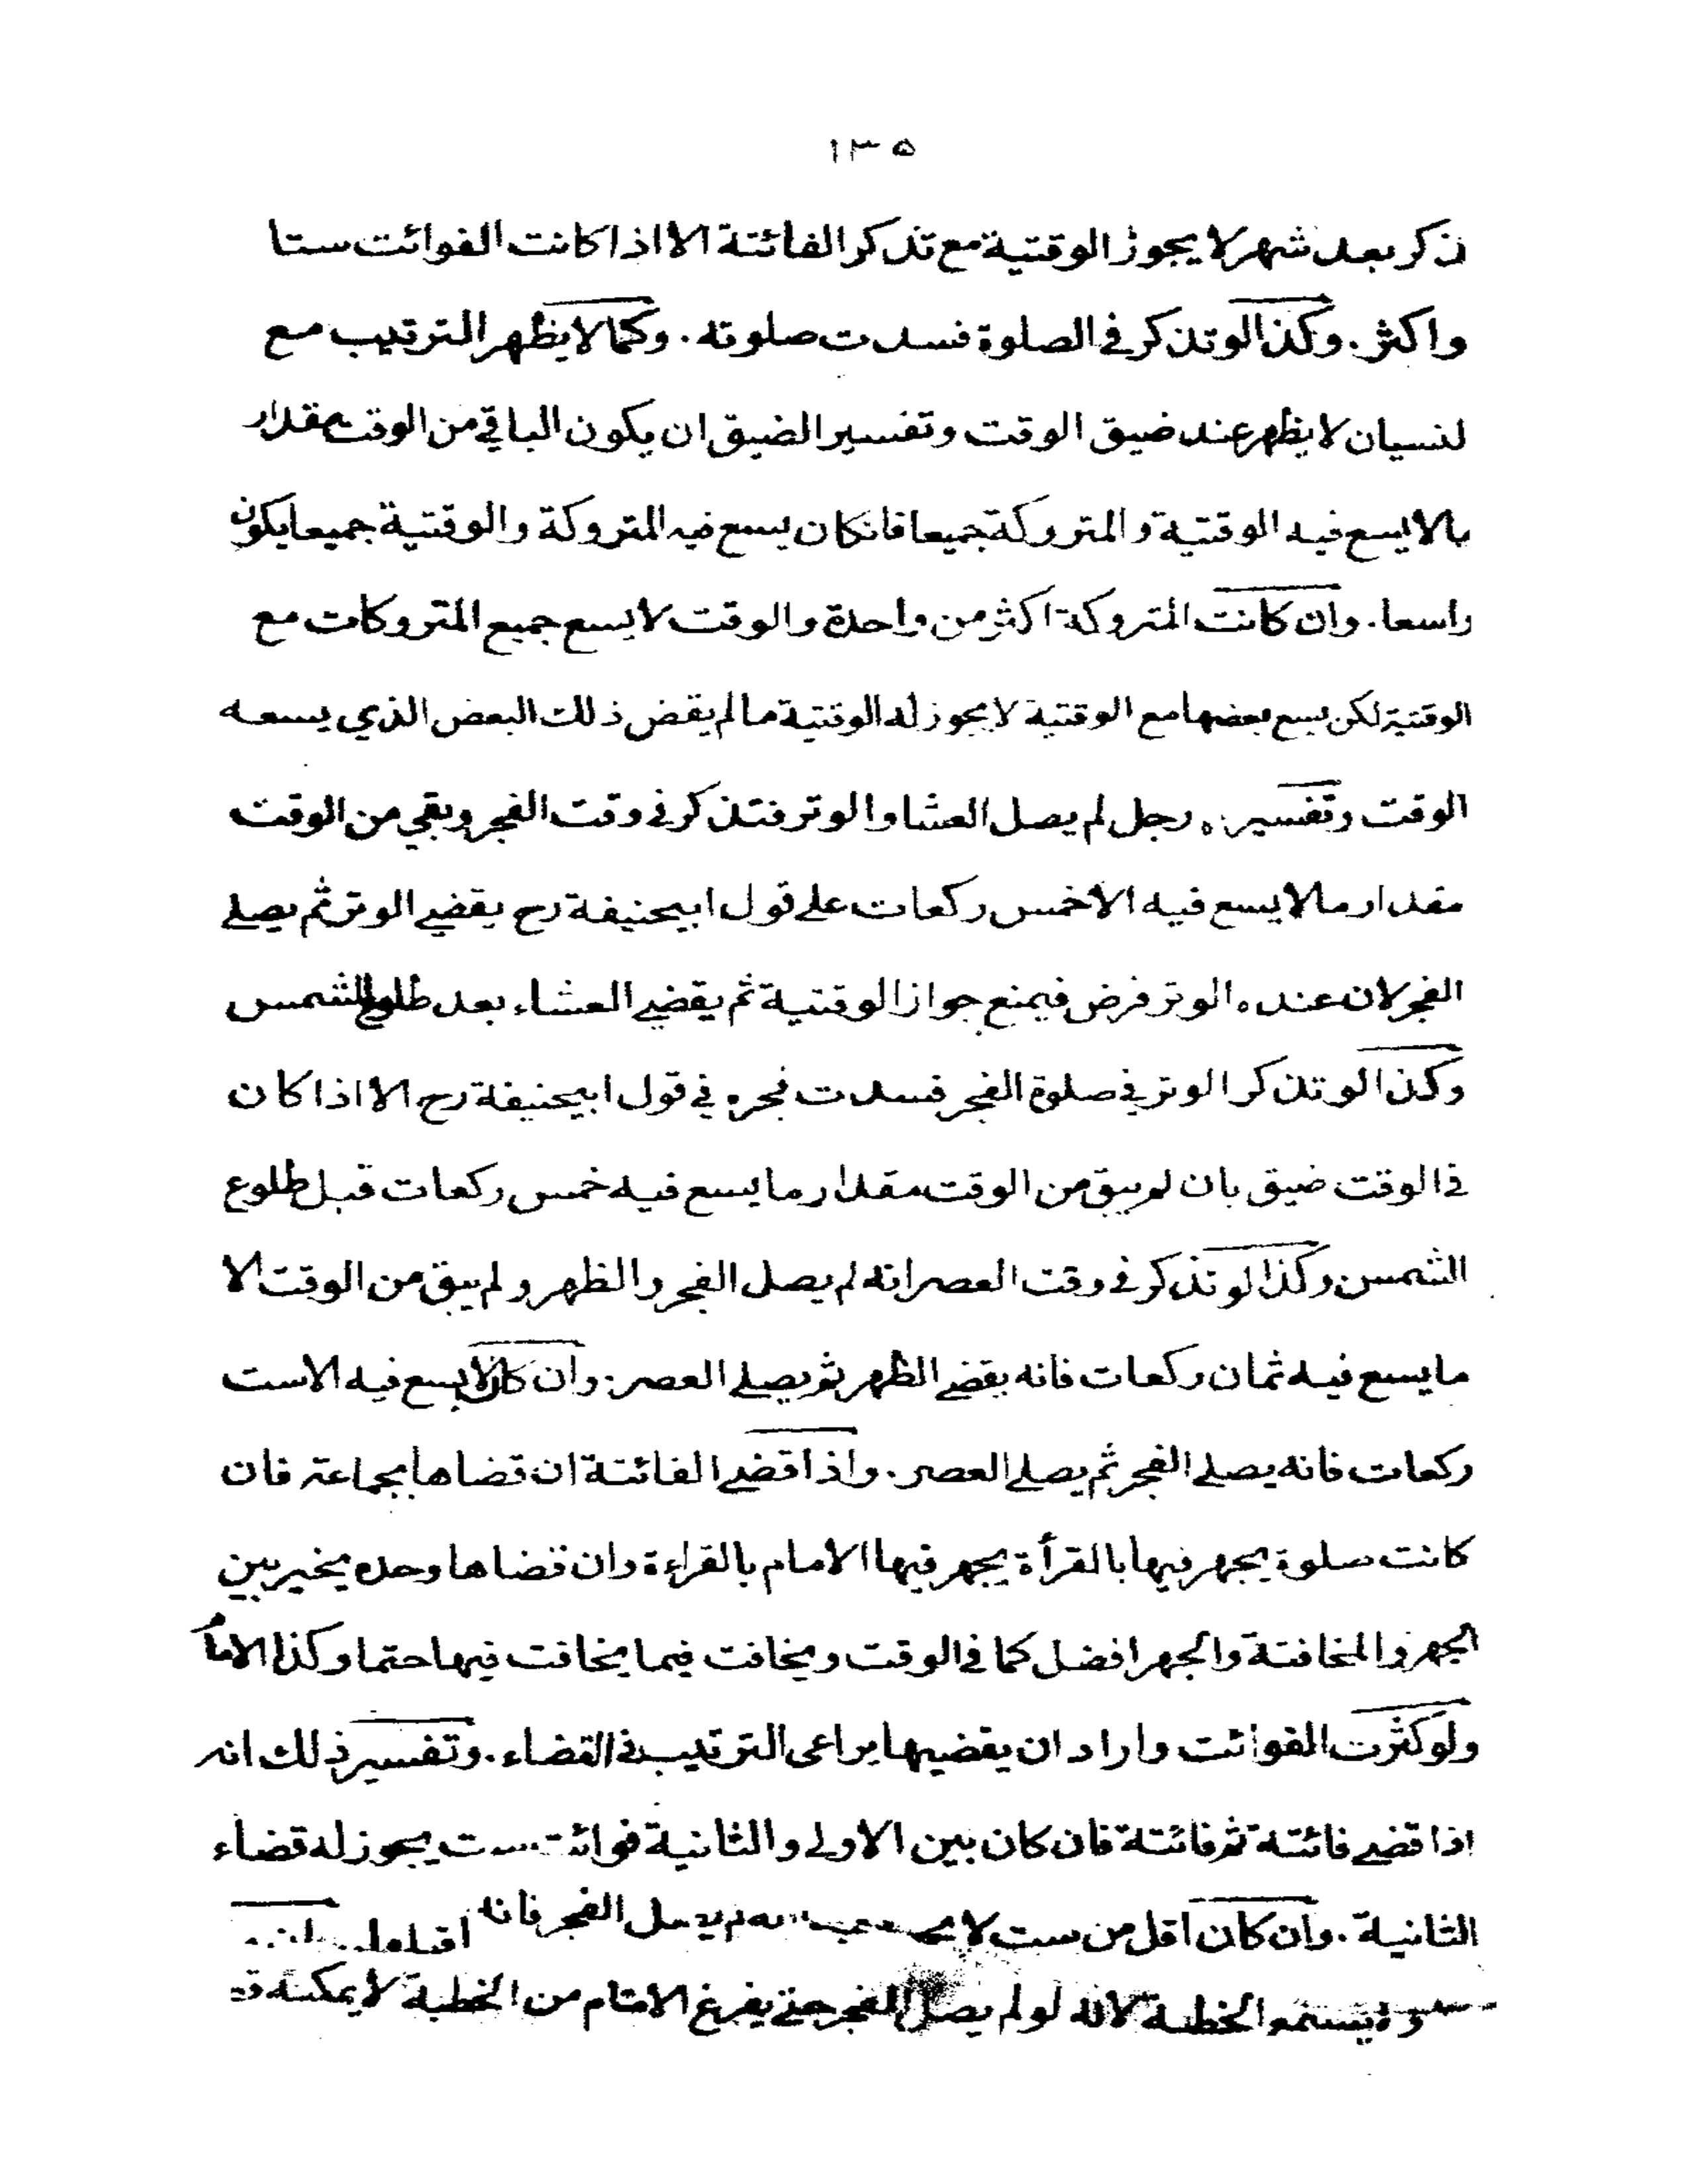 ١٣٥
ذكر بعد شهر لا يجوز الوقتية مع تذكر الفائتة الا اذا كانت الفوائت ستا
واكثر. وكذا لو تذكر في الصلوة فسدت صلوته. وكما لا يظهر الترتيب مع
لنسيان لا يظهر عند ضيق الوقت وتفسير الضيق ان يكون الباقي من الوقت مقدار
مالا يسع فيه الوقتية والمتروكة جميعا فانكان يسع فيه المتروكة والوقتية جميعا يكون
واسعا. وان كانت المتروكة اكثر من واحدة والوقت لا يسع جميع المتروكات مع
الوقتية لكن يسع بعضها مع الوقتية لا يجوز له الوقتية مالم يقض ذلك البعض الذي يسعه
الوقت وتفسيره رجل لم يصل العشا والوتر فتذكر في وقت الفجر وبقي من الوقت
مقدار مالا يسع فيه الا خمس ركعات على قول ابيحنيفة رح يقضي الوتر ثم يصلي
الفجر لان عنده الوتر فرض فيمنع جواز الوقتية ثم يقضي العشاء بعد طلوع الشمس
وكذا لو تذكر الوتر في صلوة الفجر فسدت فجره في قول ابيحنيفة رح الا اذا كان
في الوقت ضيق بان لم يبق من الوقت مقدار ما يسع فيه خمس ركعات قبل طلوع
الشمس وكذا لو تذكر في وقت العصر انه لم يصل الفجر والظهر ولم يبق من الوقت الا
ما يسع فيه ثمان ركعات فانه يقضي الظهر ثم يصلي العصر. وان كان لا يسع فيه الا ست
ركعات فانه يصلي الفجر ثم يصلي العصر. واذا قضى الفائتة ان قضاها بجماعة فان
كانت صلوة يجهر فيها بالقرأة يجهر فيها الامام بالقراءة وان قضاها وحده يخير بين
الجهر والمخافتة والجهر افضل كما في الوقت ويخافت فيما يخافت فيها حتما وكذا الامام
ولو كثرت الفوائت واراد ان يقضيها يراعى الترتيب في القضاء. وتفسير ذلك انه
اذا قضى فائتة ثم فائتة فان كان بين الاولى والثانية فوائت ست يجوز له قضاء
الثانية. وان كان اقل من ست لا يصل الفجر فانه
يستمع الخطبة لانه لو لم يصل الفجر حتى يفرغ الامام من الخطبة لا يمكنه